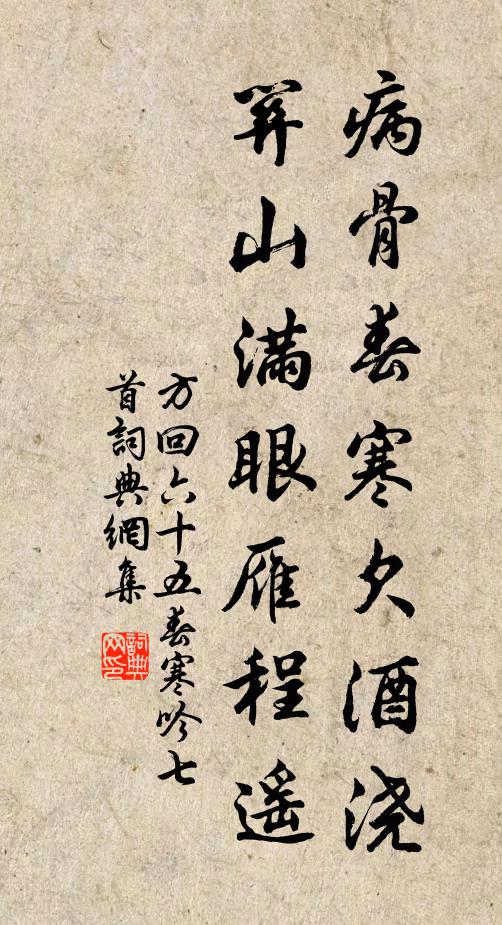 病骨春寒欠酒浇
关山满眼雁程遥
方回六十五春寒吟七
首詞典網集
詞典
网印